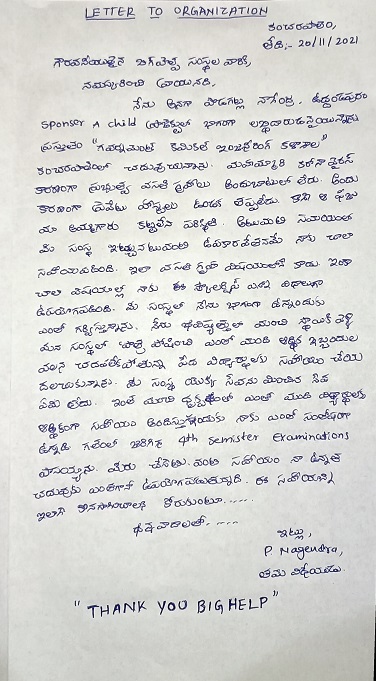 LETTER TO ORGANIZATION
కంచరపాలెం,
తేది:- 20/11/2021
గౌరవనీయులైన బిగ్ హెల్ప్ సంస్థల వారికి,
నమస్కరించి వ్రాయునది,
నేను అనగా పొడగట్ల నాగేంద్ర,
Sponser A child ప్రాజెక్టులో భాగంగా లబ్ధిదారుడనైయున్నాను
ప్రస్తుతం "గవర్నమెంట్ కెమికల్ ఇంజనీరింగ్ కళాశాల"
కంచరపాలెంలో చదువుచున్నాను. మహమ్మారి కరోనా వైరస్
కారణంగా ప్రభుత్వ వసతి గృహాలు అందుబాటులో లేవు. అందు
కారణంగా ప్రైవేటు హాస్టల్లు ఉండక తప్పలేదు. కాని ఆ ఫీజు
మా అమ్మగారు కట్టలేని పరిస్థితి. అటువంటి సమయంలో
మీ సంస్థ ఇచ్చునటువంటి ఉపకారవేతనమే నాకు చాలా
సహాయపడింది. ఇలా వసతి గృహ విషయంలోనే కాదు. ఇంకా
చాలా విషయాల్లో నాకు ఈ స్కాలర్షిప్ ఎంతో విధాలుగా
ఉపయోగపడింది. మీ సంస్థలో నేను భాగంగా ఉన్నందుకు
ఎంతో గర్విస్తున్నాను. నేను భవిష్యత్తులో మంచి స్థాయికి వెళ్లి
మన సంస్థలో పాత్ర పోషించి ఎంతో మంది ఆర్థిక ఇబ్బందుల
వలన చదవలేకపోతున్న పేద విద్యార్థులకు సహాయం చేయ
దలచుకున్నాను. మీ సంస్థ యొక్క సేవను మించిన సేవ
ఏది లేదు. ఇంత మంచి దృక్పథంతో ఎంతో మంది విద్యార్థులకు
ఆర్థికంగా సహాయం అందిస్తున్నందుకు నాకు ఎంతో సంతోషంగా
ఉన్నది గతంలో జరిగిన 4th semister Examinations
పాసయ్యాను. మీరు చేసేటు వంటి సహాయం నా ఉన్నత
చదువుకు ఎంతగానో ఉపయోగపడుతున్నది. ఈ సహాయాన్ని
ఇలాగే కొనసాగించాలని కోరుకుంటూ......
ధన్యవాదాలతో.....
ఇట్లు,
P. Nagendra,
తమ విధేయుడు.
"THANK YOU BIGHELP"